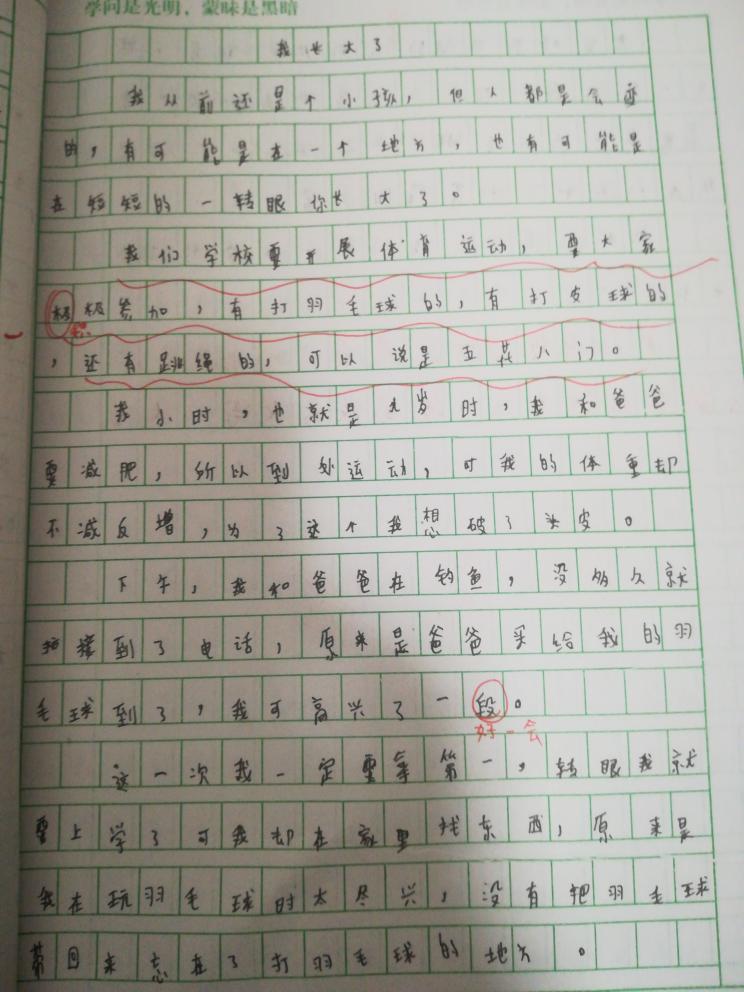 学问是光明，蒙昧是黑暗
我长大了
我从前还是个小孩，但人都是会变
的，有可能是在一个地方，也有可能是
在短短的一转眼你长大了。
我们学校要开展体育运动，要大家
极极参加，有打羽毛球的，有打皮球的
积
，还有跳绳的，可以说是五花八门。
我小时，也就是九岁时，我和爸爸
要减肥，所以到处运动，可我的体重却
不减反增，为了这个我想破了头皮。
下午，我和爸爸在钓鱼，没多久就
接到了电话，原来是爸爸买给我的羽
毛球到了，我可高兴了一段。
好一会
这一次我一定要拿第一，转眼我就
要上学了可我却在家里找东西，原来是
我在玩羽毛球时太尽兴，没有把羽毛球
带回来忘在了打羽毛球的地方。